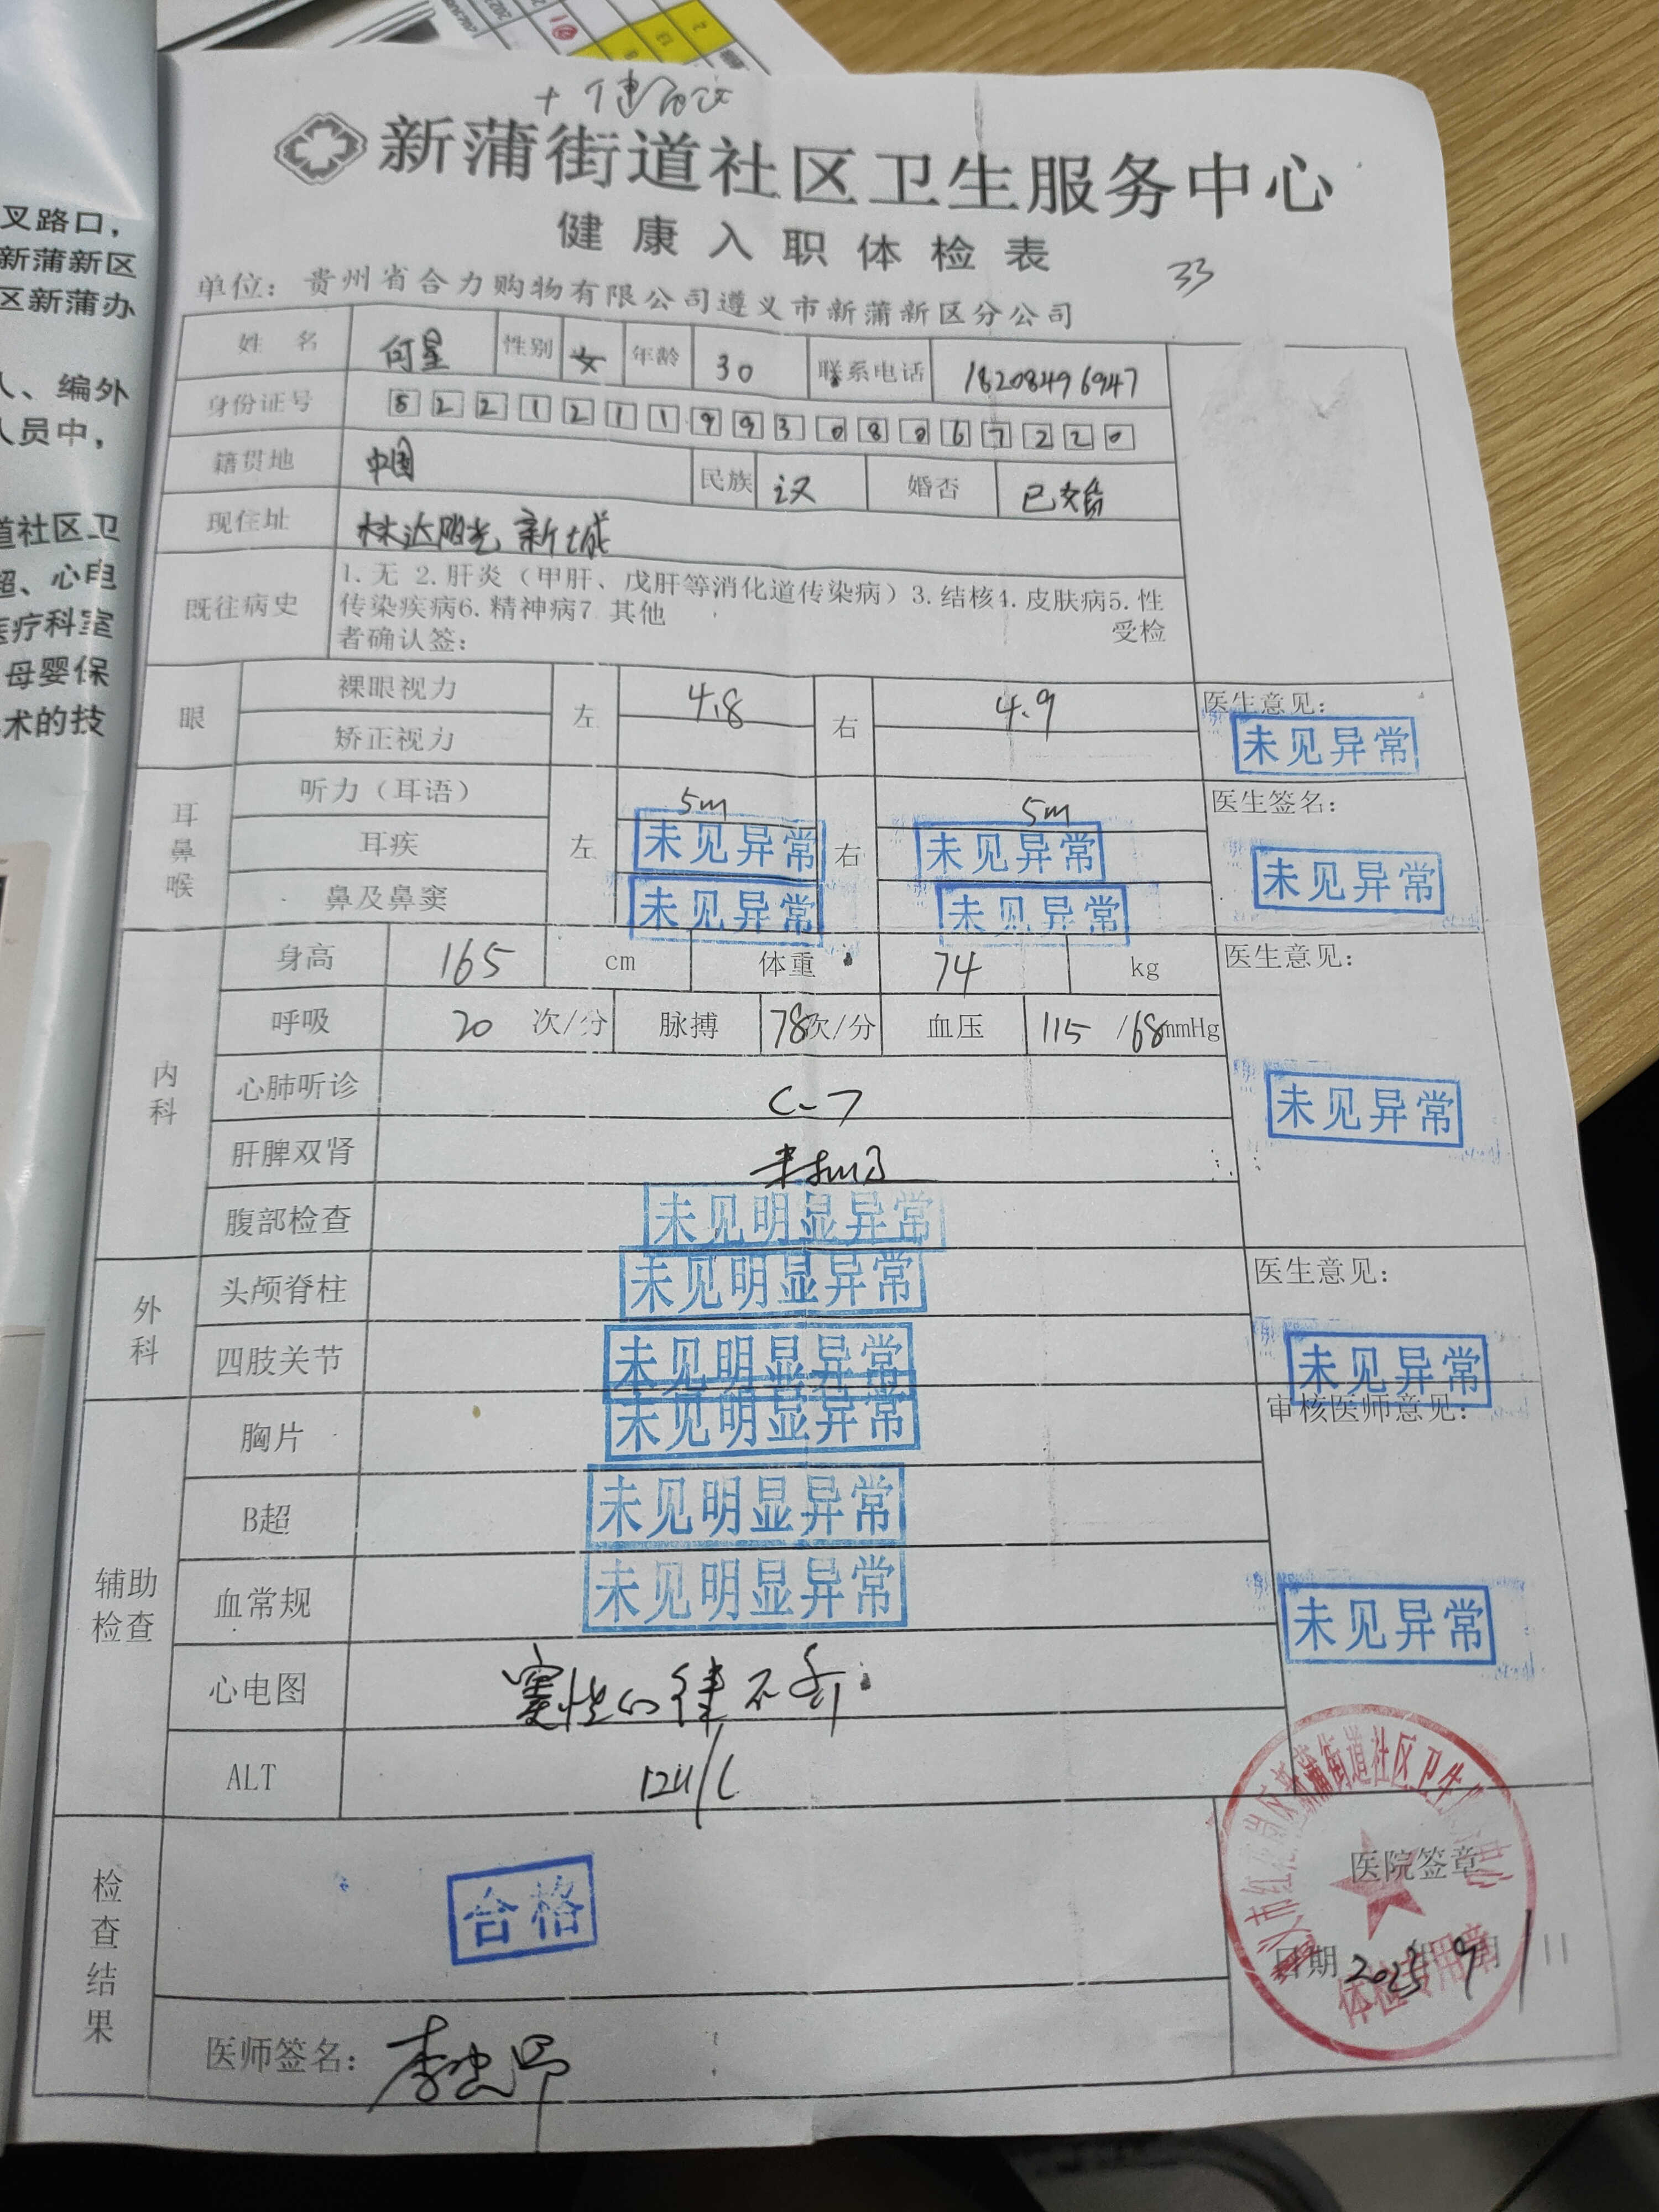 叉路口，
新蒲新区
区新蒲办
人、编外
人员中，
道社区卫
超、心电
医疗科室
母婴保
术的技
新蒲街道社区卫生服务中心
健康入职体检表
33
单位：贵州省合力购物有限公司遵义市新蒲新区分公司
姓 名 何星 性别 女 年龄 30 联系电话 18208496947
身份证号 522121199308067220
籍贯地 中国 民族 汉 婚否 已婚
现住址 林达阳光新城
既往病史 1.无 2.肝炎（甲肝、戊肝等消化道传染病）3.结核4.皮肤病5.性
传染疾病6.精神病7.其他 受检
者确认签：
眼 裸眼视力 左 4.8 右 4.9 医生意见：
矫正视力 未见异常
耳鼻喉 听力（耳语） 左 5m 右 5m 医生签名：
耳疾 未见异常 未见异常 未见异常
鼻及鼻窦 未见异常 未见异常
内科 身高 165 cm 体重 74 kg 医生意见：
呼吸 20 次/分 脉搏 78次/分 血压 115 /68mmHg
心肺听诊 (-) 未见异常
肝脾双肾
腹部检查 未见明显异常
外科 头颅脊柱 未见明显异常 医生意见：
四肢关节 未见明显异常 未见异常
辅助检查 胸片 未见明显异常 审核医师意见：
B超 未见明显异常
血常规 未见明显异常 未见异常
心电图 窦性心律不齐
ALT 12U/L
检查结果 合格 医院签章
日期 2023 年 9 月 11
体检专用章
医师签名：